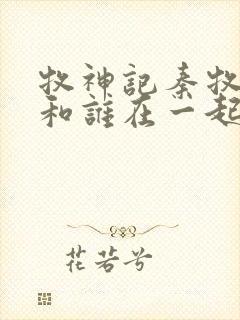 牧神記秦牧
和誰在一起
花若兮